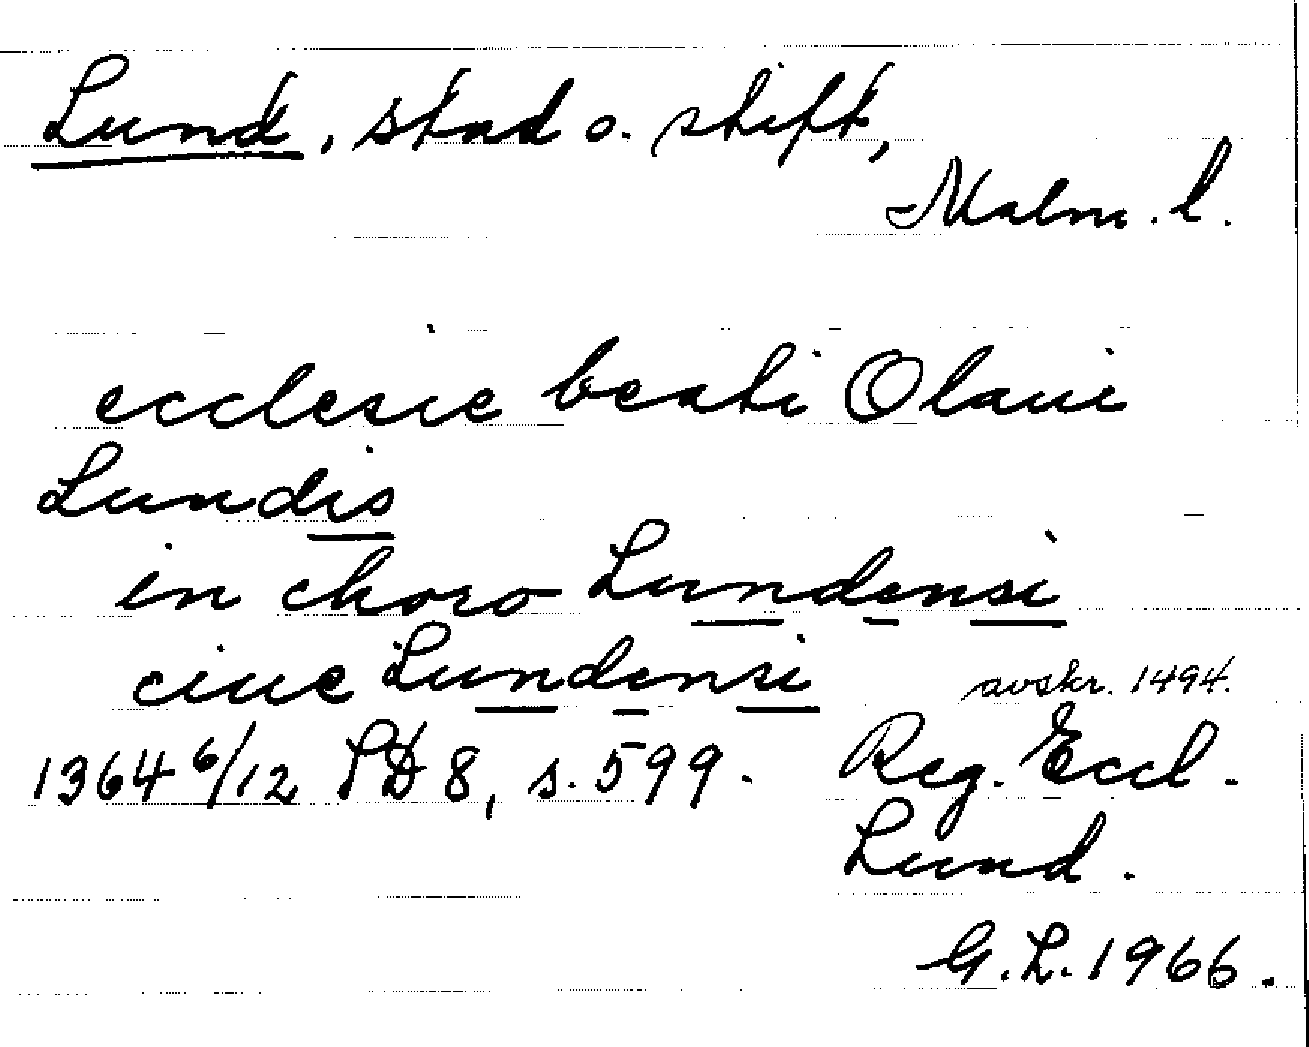 Lund, stad o. stift,
Malm. l.
ecclesie beati Olaui
Lundis
in choro Lundensi
ciue Lundensi avskr. 1494.
1364 6/12 SD 8, s. 599. Reg. Eccl.
Lund.
G.L. 1966.